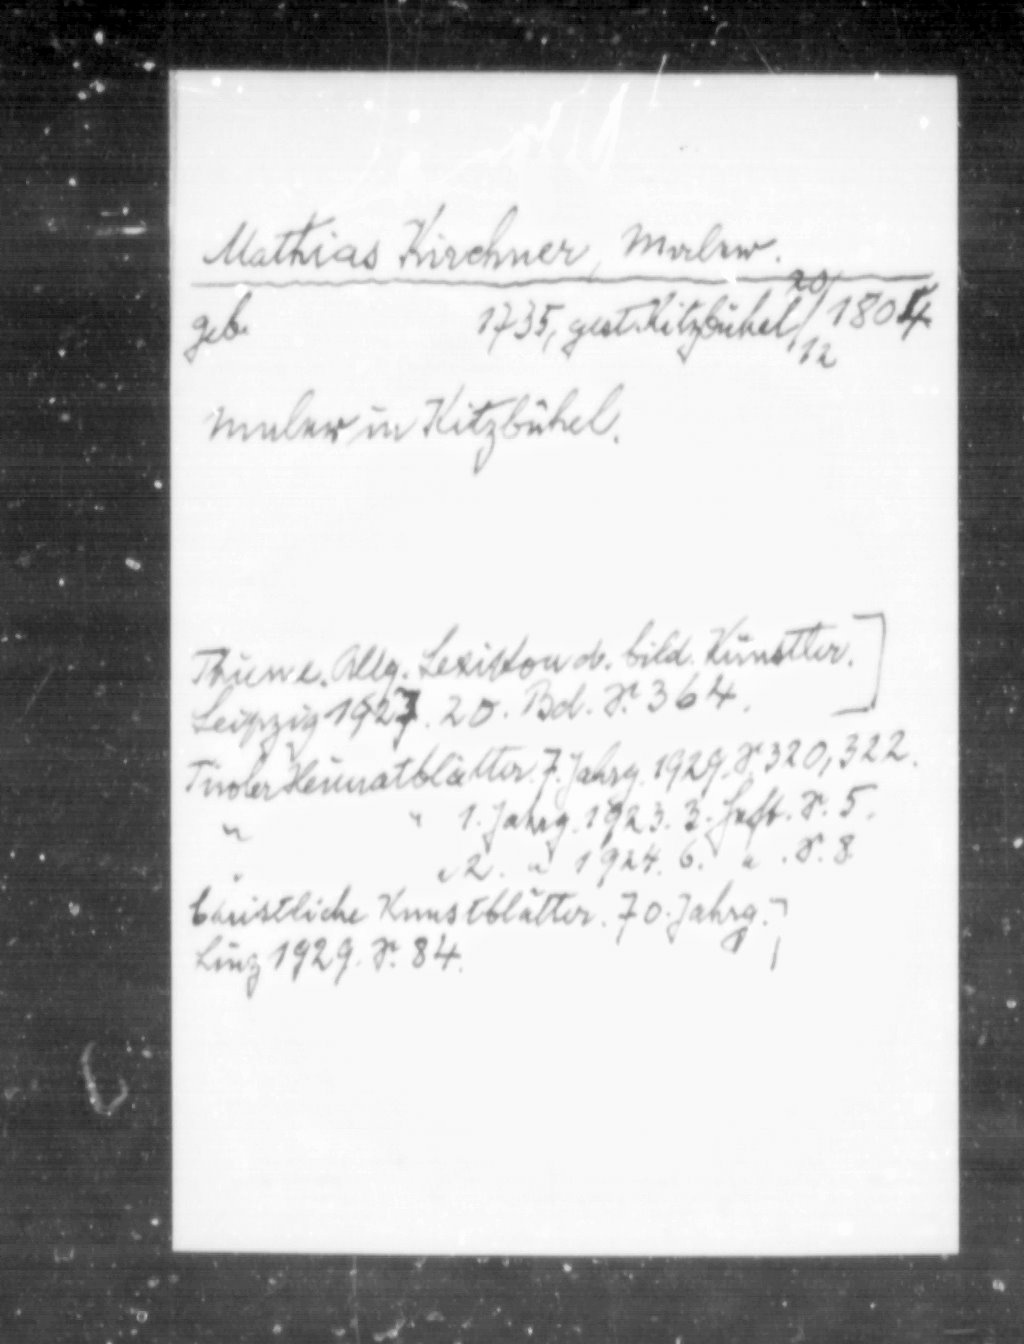 Mathias Kirchner, Maler.
geb. 1735, gest. Kitzbühel, 20/12 1804
Maler in Kitzbühel.
Thieme. Allg. Lexikon d. bild. Künstler.
Leipzig 1927. 20. Bd. S. 364.
Tiroler Heimatblätter. 7. Jahrg. 1929. S. 320, 322.
" " 1. Jahrg. 1923. 3. Heft. S. 5.
" " 2. " 1924. 6. " . S. 8
Christliche Kunstblätter. 70. Jahrg.
Linz 1929. S. 84.